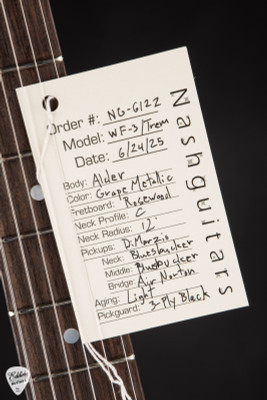 Order #: NG-6122
Model: WF-3/Trem
Date: 6/24/25
Body: Alder
Color: Grape Metallic
Fretboard: Rosewood
Neck Profile: C
Neck Radius: 12"
Pickups: DiMarzio
Neck: Bluesbucker
Middle: Bluesbucker
Bridge: Air Norton
Aging: Light
Pickguard: 3-Ply Black
Nashguitars